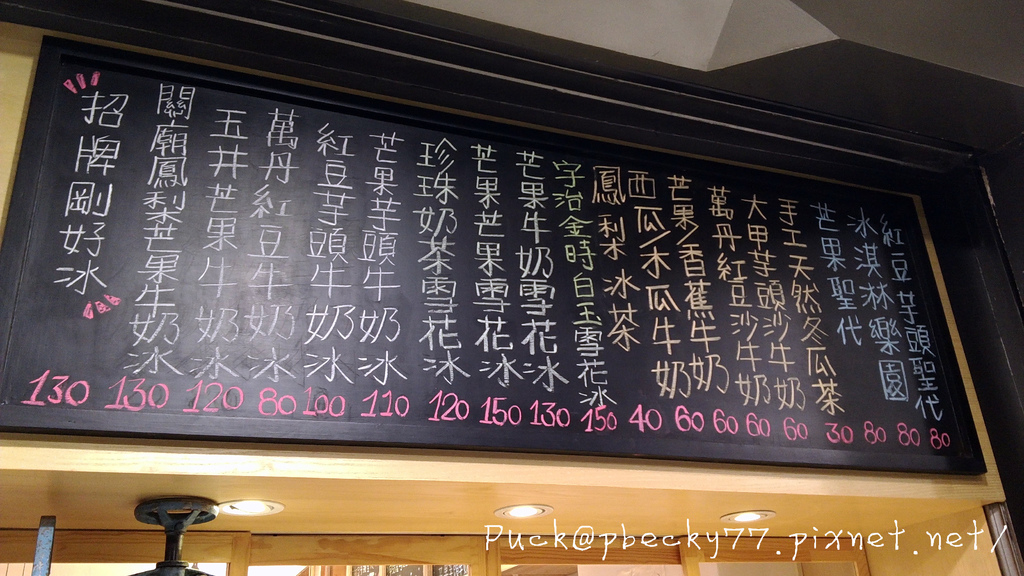 招牌剛好冰
關廟鳳梨芒果牛奶冰
五井芒果牛奶冰
萬丹紅豆牛奶冰
紅豆芋頭牛奶冰
芒果芋頭牛奶冰
珍珠奶茶雪花冰
芒果芒果雪花冰
芒果牛奶雪花冰
宇治金時白玉雪花冰
鳳梨冰茶
西瓜/木瓜牛奶
芒果/香蕉牛奶
萬丹紅豆沙牛奶
大甲芋頭沙牛奶
手工天然冬瓜茶
芒果聖代
冰淇淋樂園
紅豆芋頭聖代
130 130 120 80 100 110 120 150 130 150 40 60 60 60 60 30 80 80 80
Puck@pbecky77.pixnet.net/